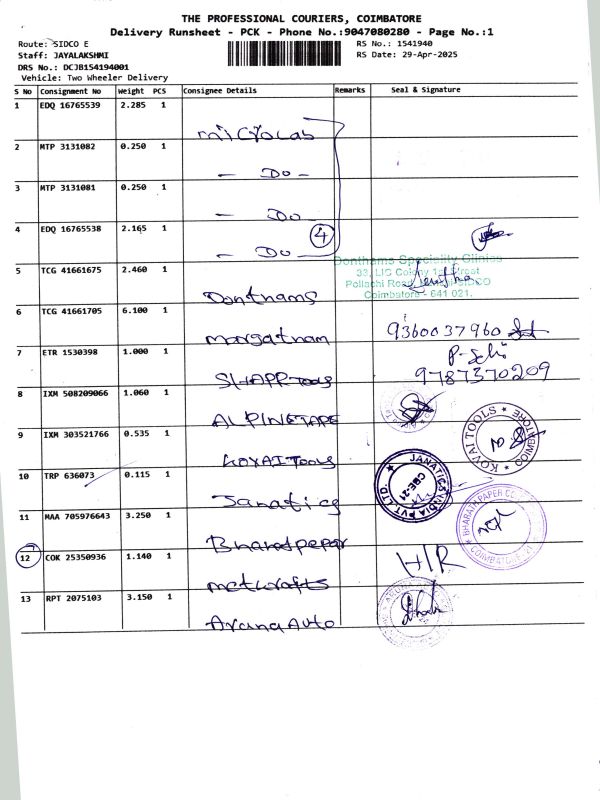 THE PROFESSIONAL COURIERS, COIMBATORE
Delivery Runsheet - PCK - Phone No.:9047080280 - Page No.:1
Route: SIDCO E
RS No.: 1541940
Staff: JAYALAKSHMI
RS Date: 29-Apr-2025
DRS No.: DCJB154194001
Vehicle: Two Wheeler Delivery
S No Consignment No Weight PCS Consignee Details Remarks Seal & Signature
1 EDQ 16765539 2.285 1
microlab
2 MTP 3131082 0.250 1
- Do -
3 MTP 3131081 0.250 1
- Do -
4 EDQ 16765538 2.165 1
4
- Do -
Donthams Speciality Clinics
5 TCG 41661675 2.460 1
33, LIC Colony 1st Street
Pollachi SIDCO
Coimbatore - 641 021.
Donthams
6 TCG 41661705 6.100 1
9360037960
7 ETR 1530398 1.000 1
9787370209
SHARP Tools
8 IXM 508209066 1.060 1
ALPINE TAPE
9 IXM 303521766 0.535 1
KOVAI TOOLS
COIMBATORE
KOVAI Tools
10 TRP 636073 0.115 1
JANATICS INDIA PVT. LTD.
CBE-21
Janatics
11 MAA 705976643 3.250 1
BHARATH PAPER
COIMBATORE-21
Bharatpepar
12 COK 25350936 1.140 1
H/R
metcrafts
13 RPT 2075103 3.150 1
Aruna Auto